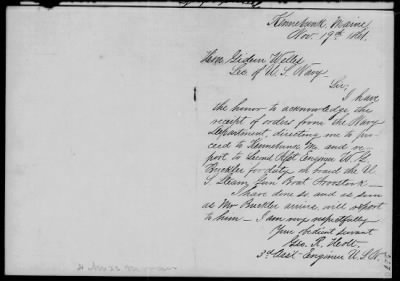 Kennebunk, Maine
Nov. 19th 1861.
Hon. Gideon Welles
Sec of U. S. Navy
Sir,
I have
the honor to acknowledge the
receipt of orders from the Navy
Department, directing me to pro-
ceed to Kennebunk, Me and re-
port to Second Asst Engineer
Buckler for duty on board the U.
S. Steam Gun Boat Aroostook
I have done so and as soon
as Mr Buckler arrive will report
to him - I am very respectfully
Your obedient servant
Geo. R. Holt
3d Asst Engineer U.S.N.